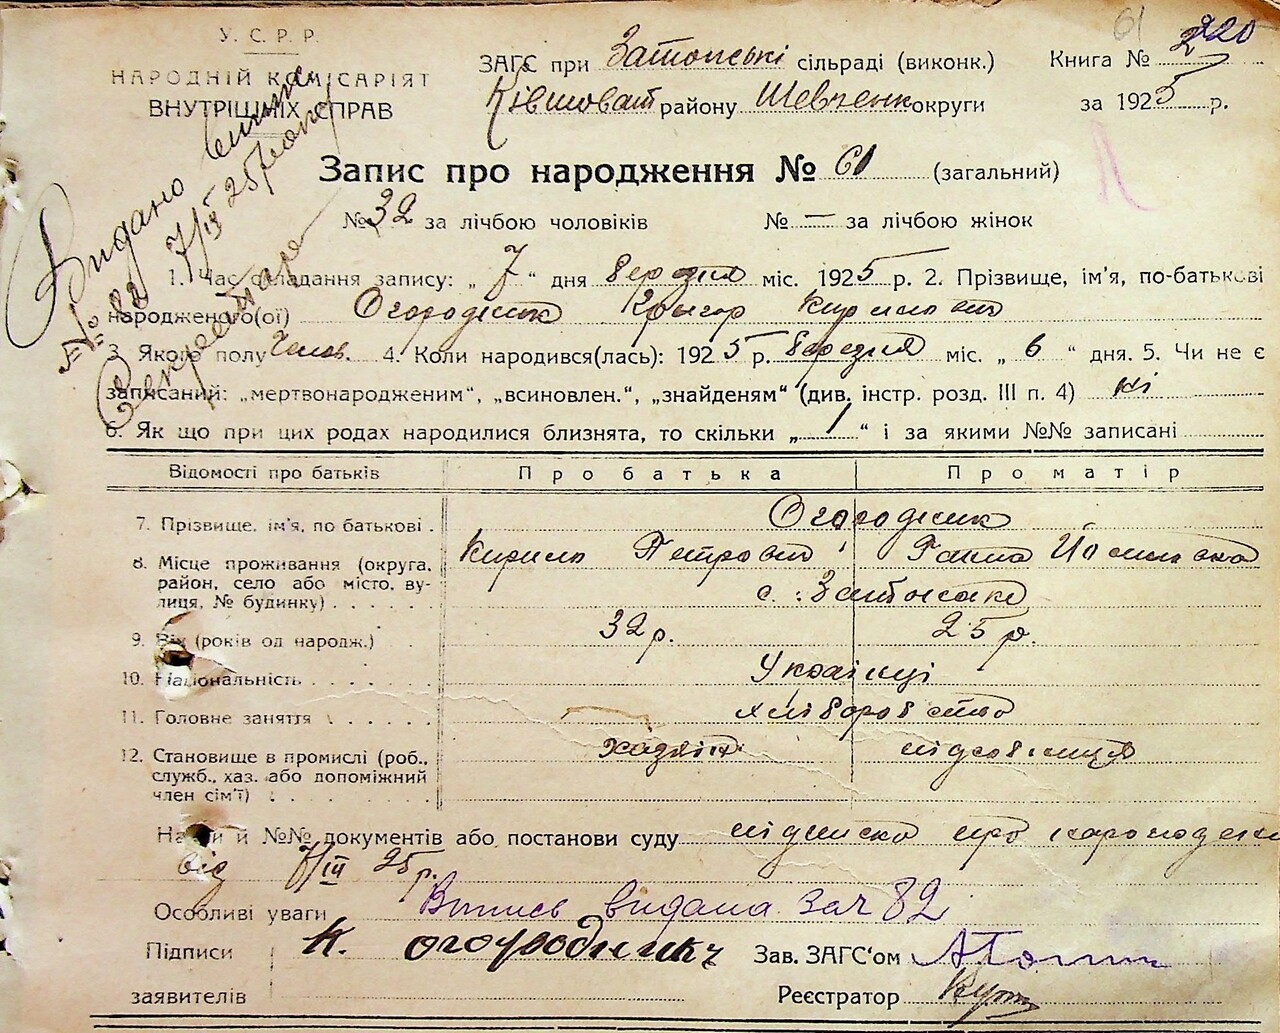 У.С.Р.Р.
НАРОДНІЙ КОМІСАРІЯТ
ВНУТРІШНІХ СПРАВ
ЗАГС при Затонські сільраді (виконк.) Книга № 2
220
61
Ківшоват району Шевченк округи за 1925 р.
Запис про народження № 61 (загальний)
№ 32 за лічбою чоловіків № — за лічбою жінок
Видано
№ 82 7/III 25
Секретар
1. Час складання запису: „ 7 “ дня березня міс. 1925 р. 2. Прізвище, ім’я, по-батькові
народженого(ої) Огородник Григор Кирилов
3. Якого полу Чолов. 4. Коли народився(лась): 1925 р. березня міс. „ 6 “ дня. 5. Чи не є
записаний: „мертвонародженим“, „всиновлен.“, „знайденям“ (див. інстр. розд. III п. 4) ні
6. Як що при цих родах народилися близнята, то скільки „ 1 “ і за якими №№ записані
Відомості про батьків Про батька Про матір
7. Прізвище, ім’я, по батькові . Огородник
Кирило Петрович Ганна Йосипівна
8. Місце проживання (округа, район, село або місто, вулиця, № будинку) с. Затонське
9. Вік (років од народж.) 32 р. 25 р.
10. Національність Українці
11. Головне заняття хліборобство
12. Становище в промислі (роб., служб., хаз. або допоміжний член сім’ї) хазяїн
Назви й №№ документів або постанови суду підписка про народжен
від 7/III 25 р.
Особливі уваги Випись видана за № 82
Підписи К. огородник Зав. ЗАГС‘ом
заявителів Реєстратор